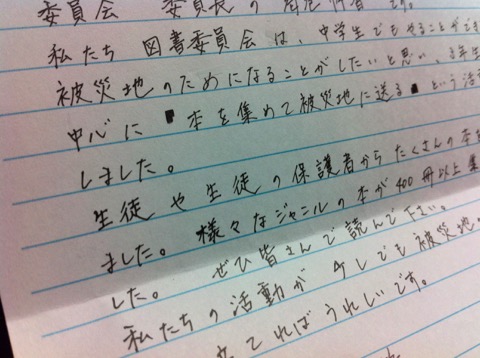 委員会 委員長の
私たち 図書委員会は、中学生でもやることができ
被災地のためになることがしたいと思い、3年生
中心に 本を集めて被災地に送る という活
しました。
生徒や生徒の保護者からたくさんの本
ました。様々なジャンルの本が400冊以上集
した。 ぜひ皆さんで読んで下さい。
私たちの活動が 少しでも被災地
てればうれしいです。